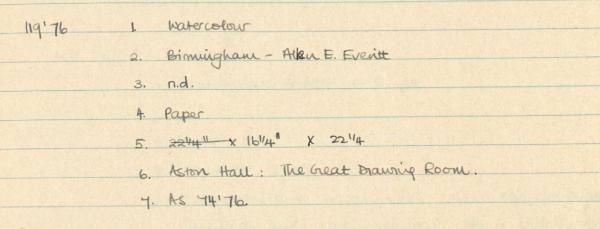 119'76 1 Watercolour
2. Birmingham - Allen E. Everitt
3. n.d.
4. Paper
5. 22 1/4" x 16 1/4" x 22 1/4
6. Aston Hall : The Great Drawing Room.
7. As 74'76.